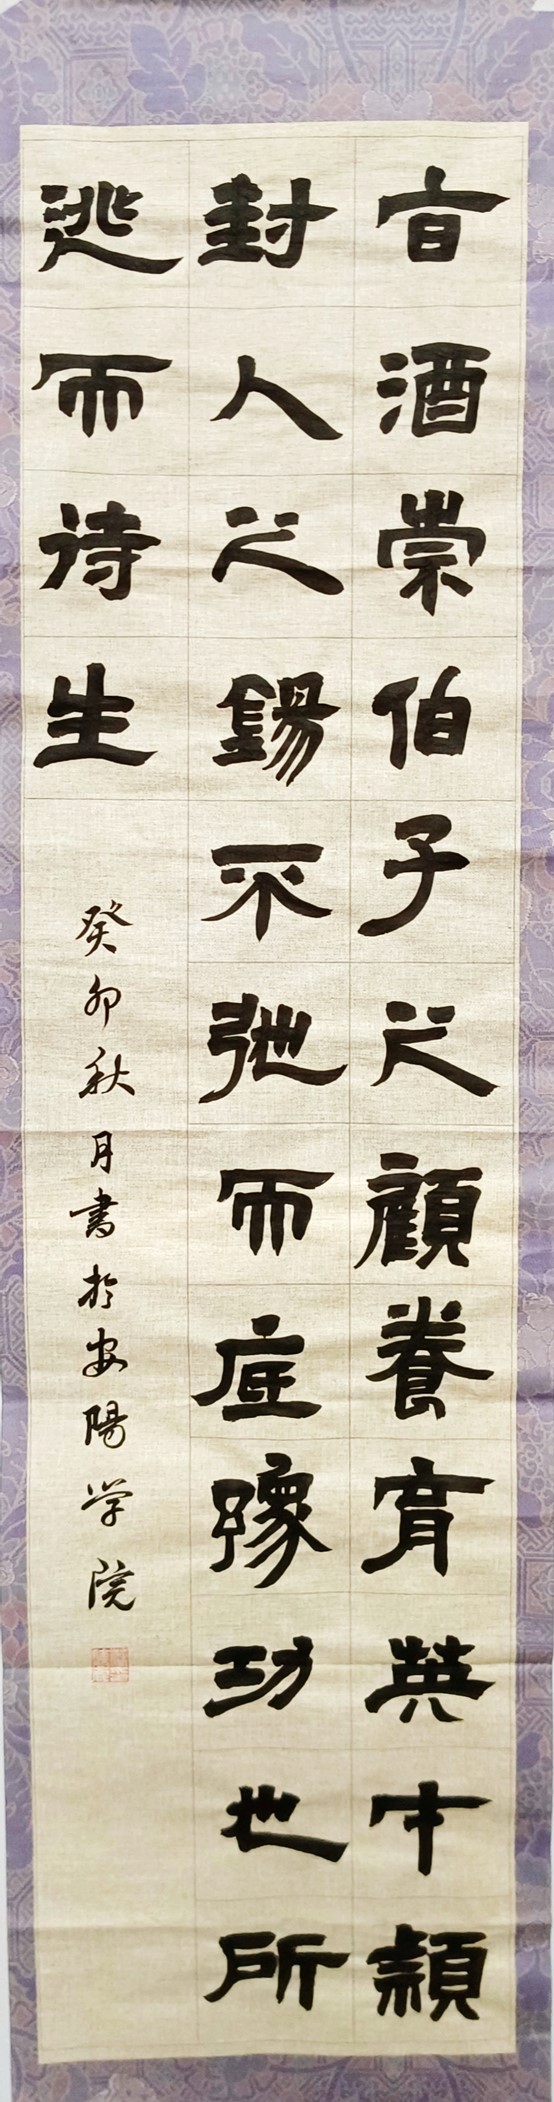 旨酒崇伯子之顧養育英才穎
封人之錫不弛而底豫功也所
逃而待生
癸卯秋月書於安陽学院